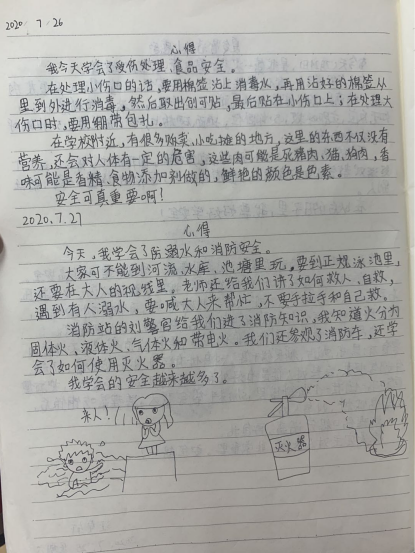 2020. 7/26
心得
我今天学会了受伤处理、食品安全。
在处理小伤口的话,要用棉签沾上消毒水,再用沾好的棉签从
里到外进行消毒,然后取出创可贴,最后贴在小伤口上;在处理大
伤口时,要用绷带包扎。
在学校附近,有很多贩卖小吃摊的地方,这里的东西不仅没有
营养,还会对人体有一定的危害,这些肉可能是死猪肉、猫、狗肉,香
味可能是香精、食物添加剂做的,鲜艳的颜色是色素。
安全可真重要啊!
2020.7.27
心得
今天,我学会了防溺水和消防安全。
大家可不能到河流、水库、池塘里玩,要到正规泳池里,
还要在大人的视线里。老师还给我们讲了如何救人、自救,
遇到有人溺水,要喊大人来帮忙,不要手拉手和自己救。
消防站的刘警官给我们进了消防知识,我知道火分为
固体火、液体火、气体火和带电火。我们还参观了消防车,还学
会了如何使用灭火器。
我学会的安全越来越多了。
来人!
灭火器